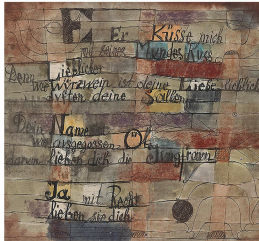 E Er Küsse mich
mit seines Mundes Kuss
Denn Lieblicher
wie würzwein ist deine Liebe lieblich
deine Salben
Dein Name ist Öl
wie ausgegossen
darum lieben dich die Jungfraun
Ja mit Recht
lieben sie dich